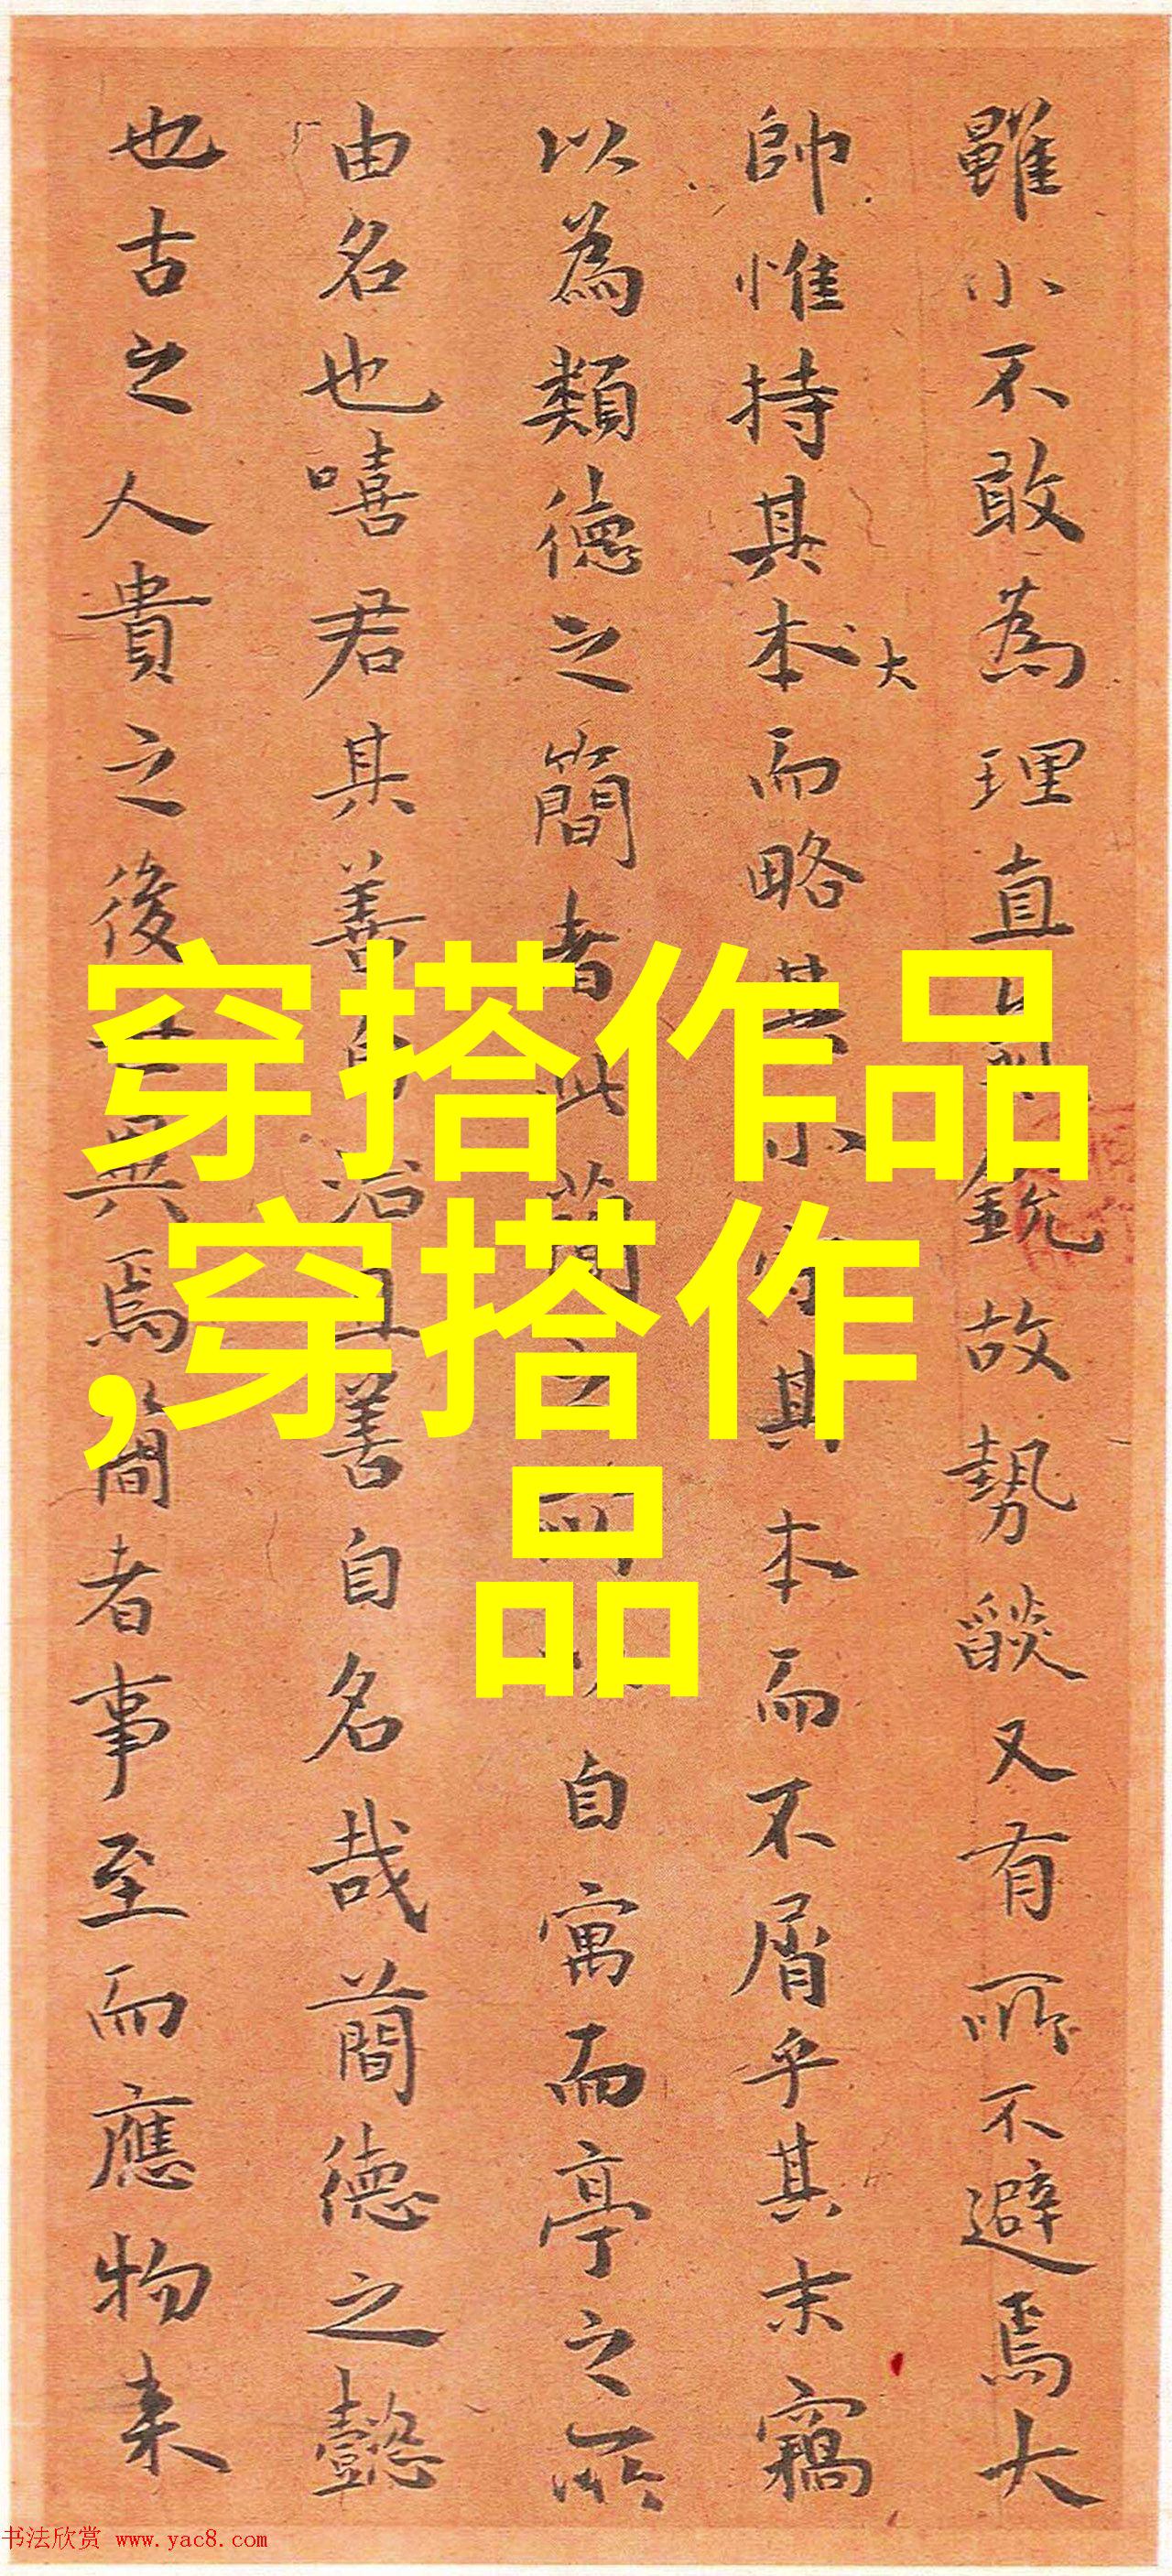 雖小不敢為理直氣銳故勢燄又有所不避焉大
帥惟持其本大而略其小守其本而不屑乎其末竊
以為類德之簡者此簡之所以自寓而亭之所
由名也嘻君其善自治且善自名哉簡德之懿
也古之人貴之後世異焉簡者事至而應物来
穿搭作品
,穿搭作
品
书法欣赏 www.yac8.com